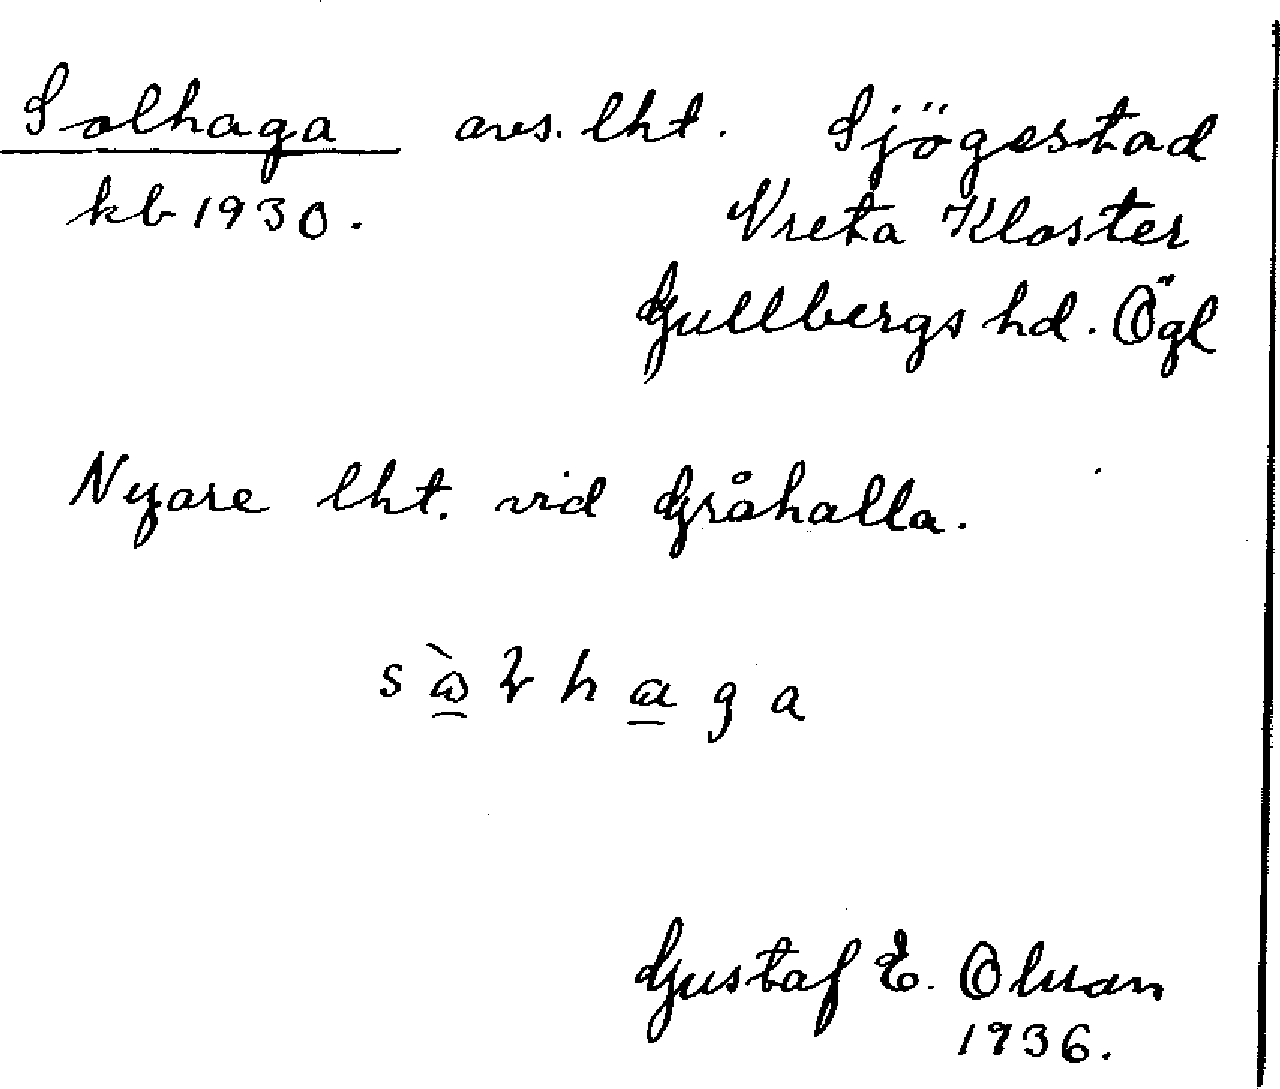 Solhaga avs. lht. Sjögestad
kb 1930. Vreta Kloster
Gullbergs hd. Ögl
Nyare lht. vid Gråhalla.
haga
Gustaf E.
1936.